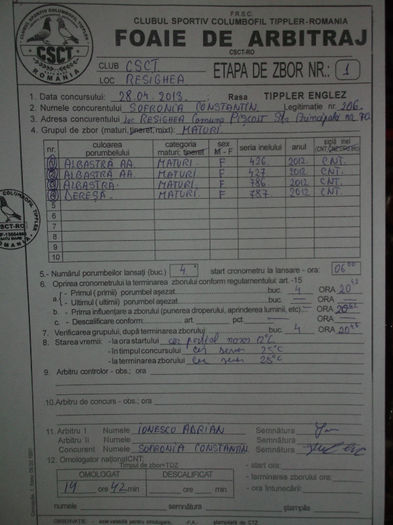 F.R.S.C.
CLUBUL SPORTIV COLUMBOFIL TIPPLER-ROMANIA
FOAIE DE ARBITRAJ
CSCT-RO
CLUBUL SPORTIV COLUMBOFIL TIPPLER
CSCT
ROMANIA
CLUB CSCT
LOC RESIGHEA
ETAPA DE ZBOR NR.: 1
1. Data concursului: 28.04.2013. Rasa TIPPLER ENGLEZ
2. Numele concurentului SOFRONIA CONSTANTIN. Legitimație nr. 206.
3. Adresa concurentului Loc RESIGHEA Comuna PISCOLT Str Principala nr 70
4. Grupul de zbor (maturi, tineret, mixt) MATURI.
nr. culoarea porumbelului categoria maturi, tineret sex M - F seria inelului anul sigla inel
1 ALBASTRĂ AA. MATURI. F 426 2012 CNT.
2 ALBASTRĂ AA. MATURI. F 427 2012 CNT.
3 ALBASTRA. MATURI. F 786 2012 CNT.
4 CEREȘA. MATURI. F 787 2012 CNT.
5
6
7
8
9
10
5.- Numărul porumbeilor lansați (buc.) 4 start cronometru la lansare - ora: 06 00
6. Oprirea cronometrului la terminarea zborului conform regulamentului art. -15
a. - Primul ( primii ) porumbel așezat buc. 4 ORA 20 42
- Ultimul ( ultimii ) porumbel așezat buc. ORA
b. - Prima influențare a zborului (punerea droperului, aprinderea luminii, etc) ORA
c. - Descalificare conform: art. pct. ORA
7. Verificarea grupului, după terminarea zborului buc. 4 ORA 20
8. Starea vremii: - la ora startului cer noros 12°C
- în timpul concursului cer senin 25°C
- la terminarea zborului cer senin 25°C
9. Arbitru controlor - obs.; ora
10. Arbitru de concurs - obs.; ora
11. Arbitru I Numele IONESCO ADRIAN Semnătura
Arbitru II Numele Semnătura
Concurent Numele SOFRONIA CONSTANTIN. Semnătura
12. Omologator național CNT:
Timpul de zbor=TDZ
OMOLOGAT DESCALIFICAT
14 ore 42 min ore min.
- start ora:
- terminarea zborului ora:
- ora întunecării:
numele semnătura ștampila